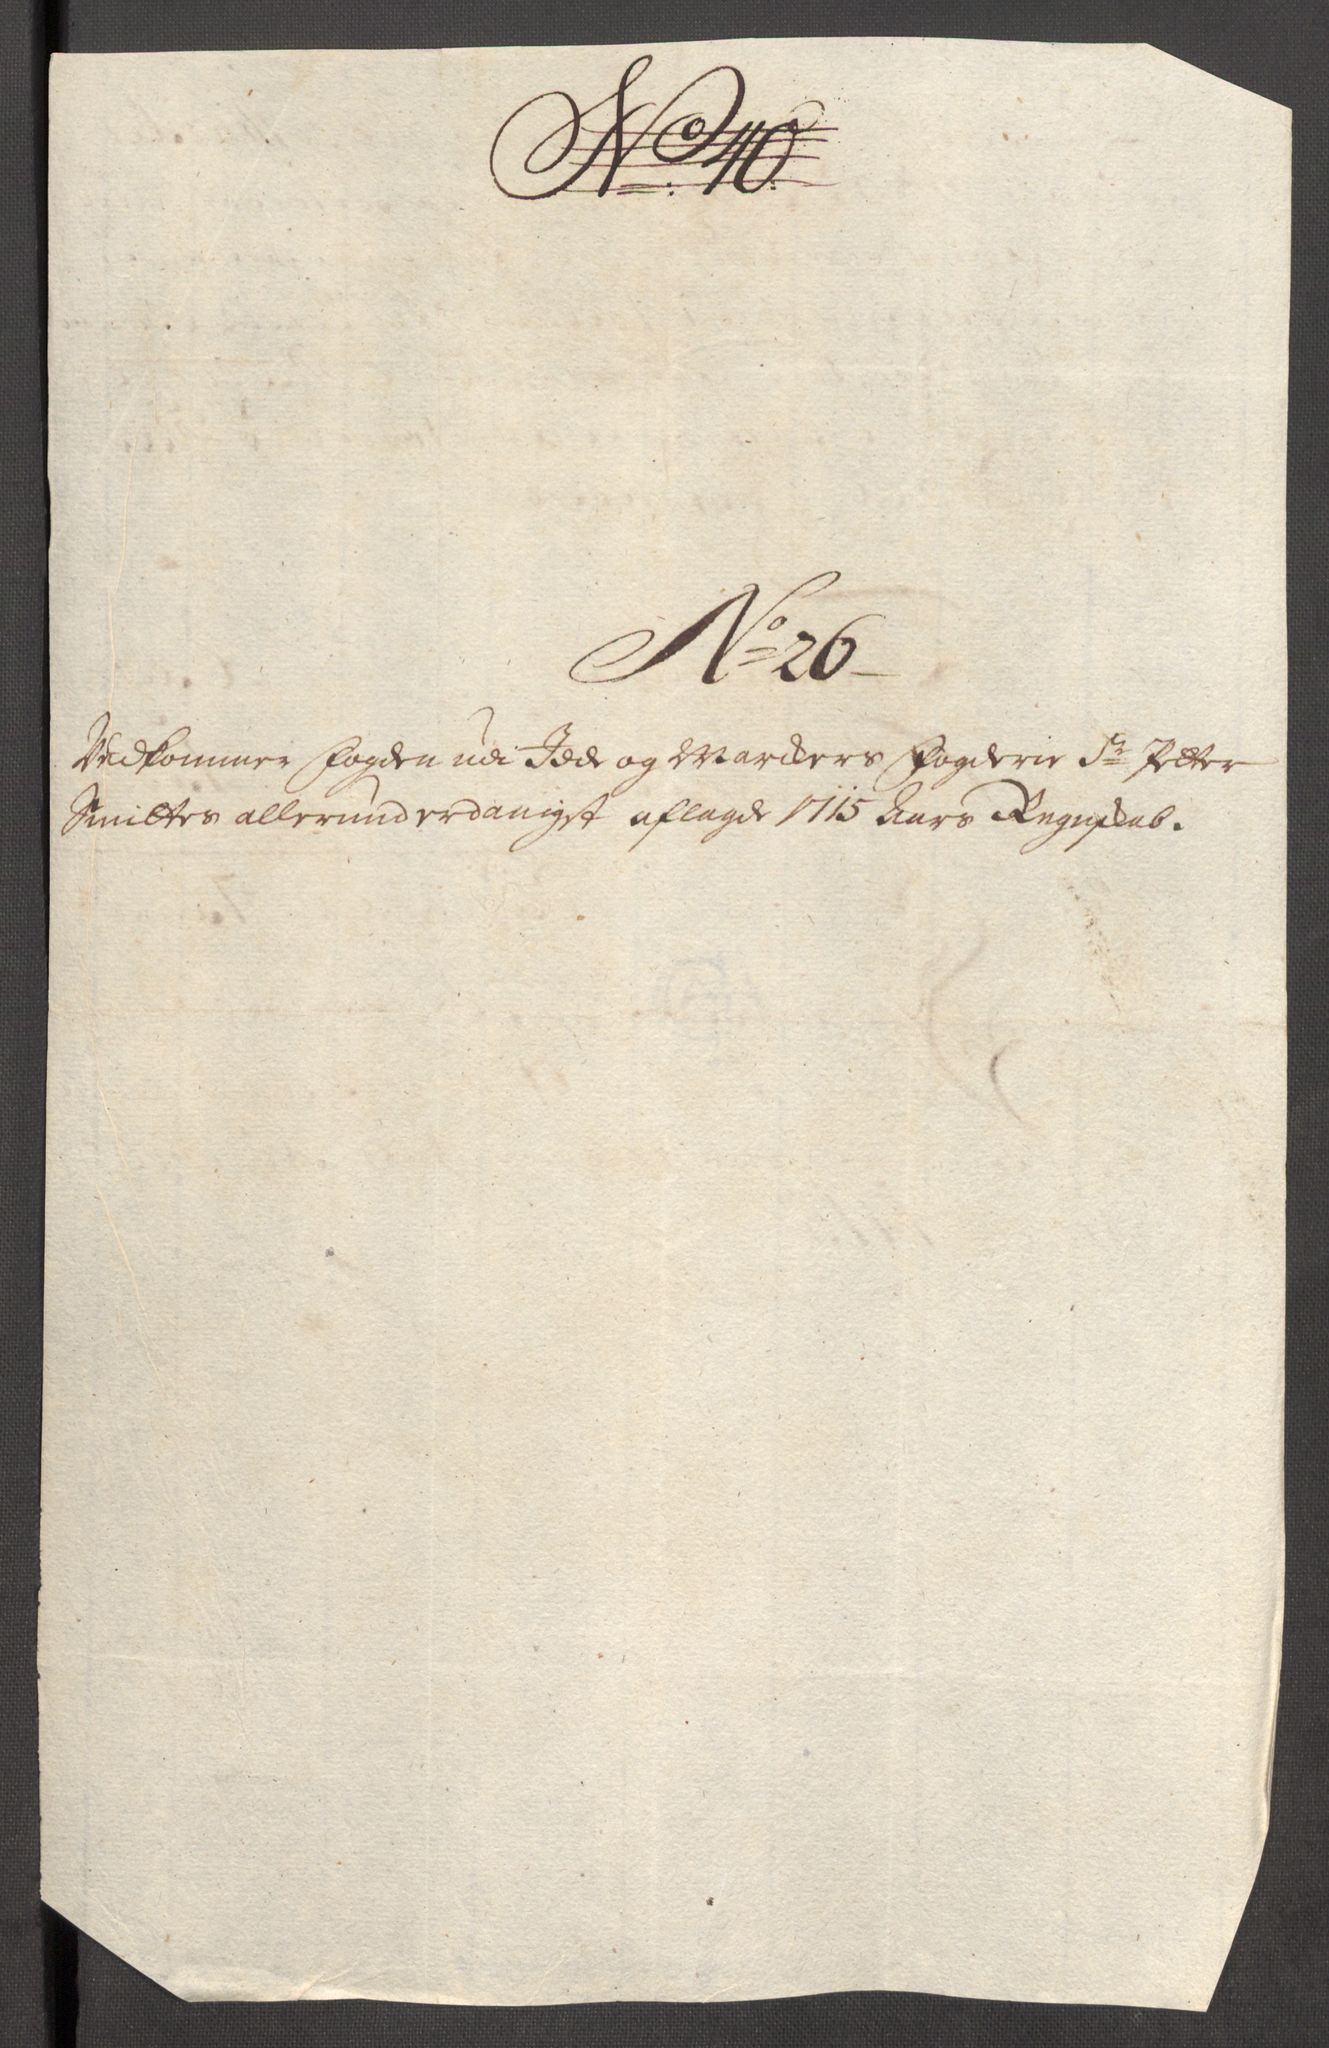 No: 40.
No 26
Vedkommer fogden udi Idde og Markers fogderie Sr Petter
Smittes allerunderdanigst aflagde 1715 Aars Regnskab.